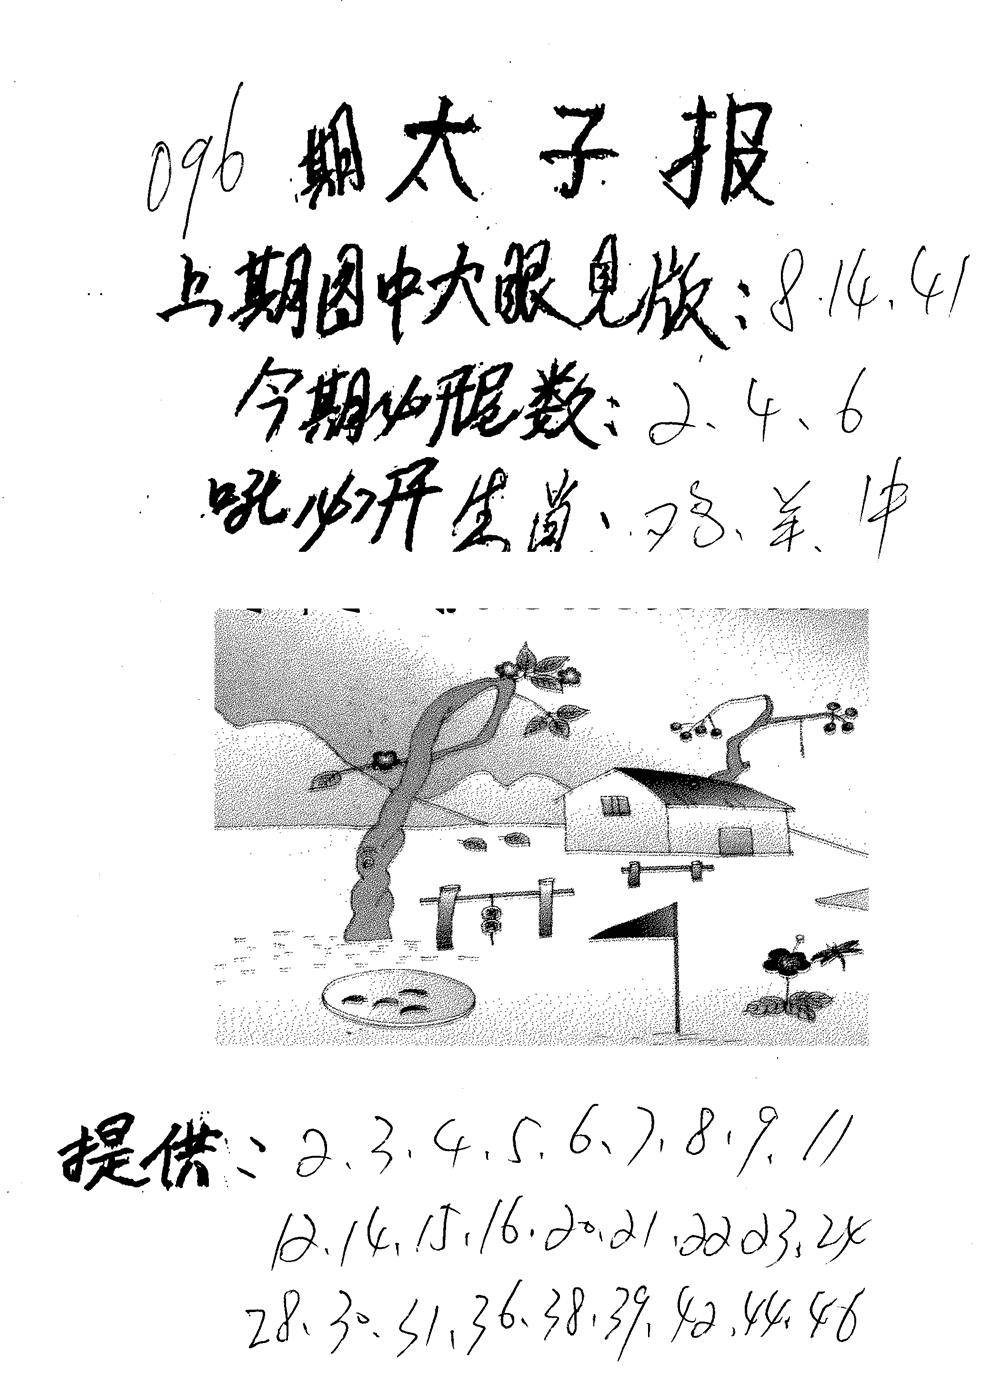 096期太子报
上期图中大眼见版：8.14.41
今期必开尾数：2、4、6
吼必开生肖、鸡、羊、牛
提供：2、3、4、5、6、7、8、9、11
12、14、15、16、20、21、22 23、24
28、30、31、36、38、39、42、44、46